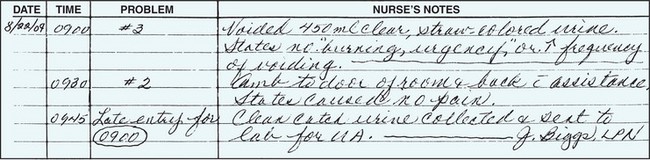 DATE TIME PROBLEM NURSE'S NOTES
8/22/09 0900 #3 Voided 450 ml clear, straw-colored urine.
States no "burning, urgency," or ↑ frequency
of voiding.
0930 #2 Amb to door of room & back c̄ assistance.
States caused no pain.
0945 Late entry for Clean catch urine collected & sent to
0900 lab for UA. J. Biggs, LPN